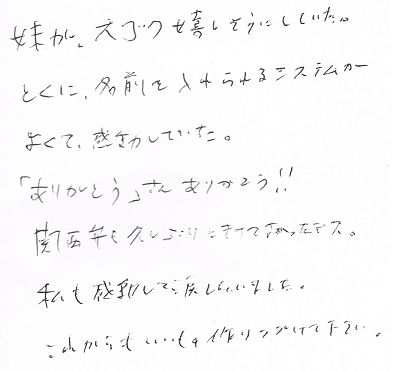 妹が、スゴク嬉しそうにしていた。
とくに、名前を入れられるシステムが
よくて、感動していた。
「ありがとう」さんありがとう!!
関西弁も久しぶりにきけてよかったデス。
私も感動して涙していました。
これからもいいもの作りつづけて下さい。